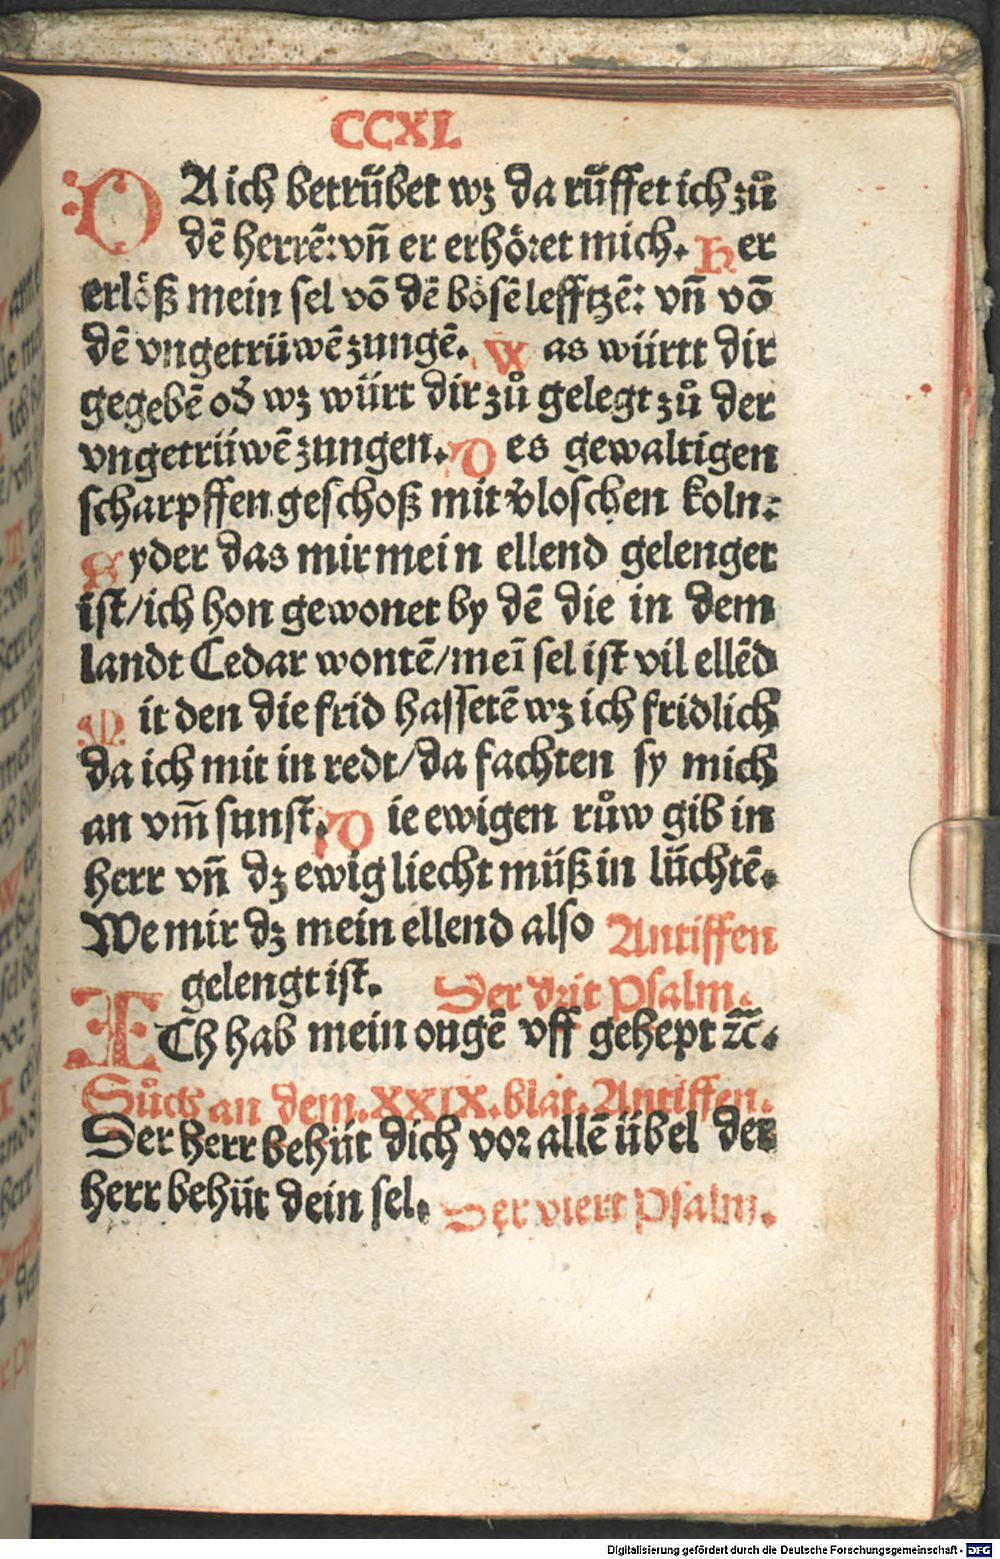 CCXL
DA ich betruͤbet wz da ruͤffet ich zuͦ
dē herrē: vñ er erhoͤret mich. Her
erloͤß mein sel vō dē boͤsē lefftzē: vñ vō
dē vngetrüwē zungē. Was württ dir
gegebē od̕ wz würt dir zuͦ gelegt zuͦ der
vngetrüwē zungen. Des gewaltigen
scharpffen geschoß mit v̕loschen koln:
Syder das mir mein ellend gelenget
ist/ich hon gewonet by dē die in dem
landt Cedar wontē/meī sel ist vil ellēd
Mit den die frid hassetē wz ich fridlich
da ich mit in redt/da fachten sy mich
an vm̄ sunst. Die ewigen ruͦw gib in
herr vñ dz ewig liecht müß in lüchtē.
We mir dz mein ellend also Antiffen
gelengt ist. Der drit Psalm.
ICh hab mein ougē vff gehept ⁊c̄.
Suͦch an dem. XXIX. blat. Antiffen.
Der herr behüt dich vor allē übel der
herr behüt dein sel. Der viert Psalm.
Digitalisierung gefördert durch die Deutsche Forschungsgemeinschaft - DFG